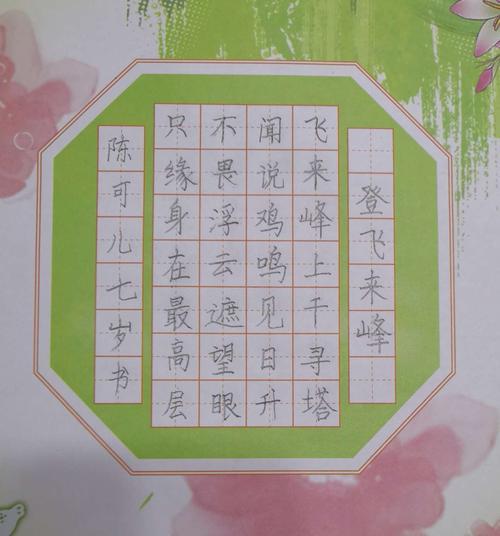 登飞来峰
飞来峰上千寻塔
闻说鸡鸣见日升
不畏浮云遮望眼
只缘身在最高层
陈可儿七岁书